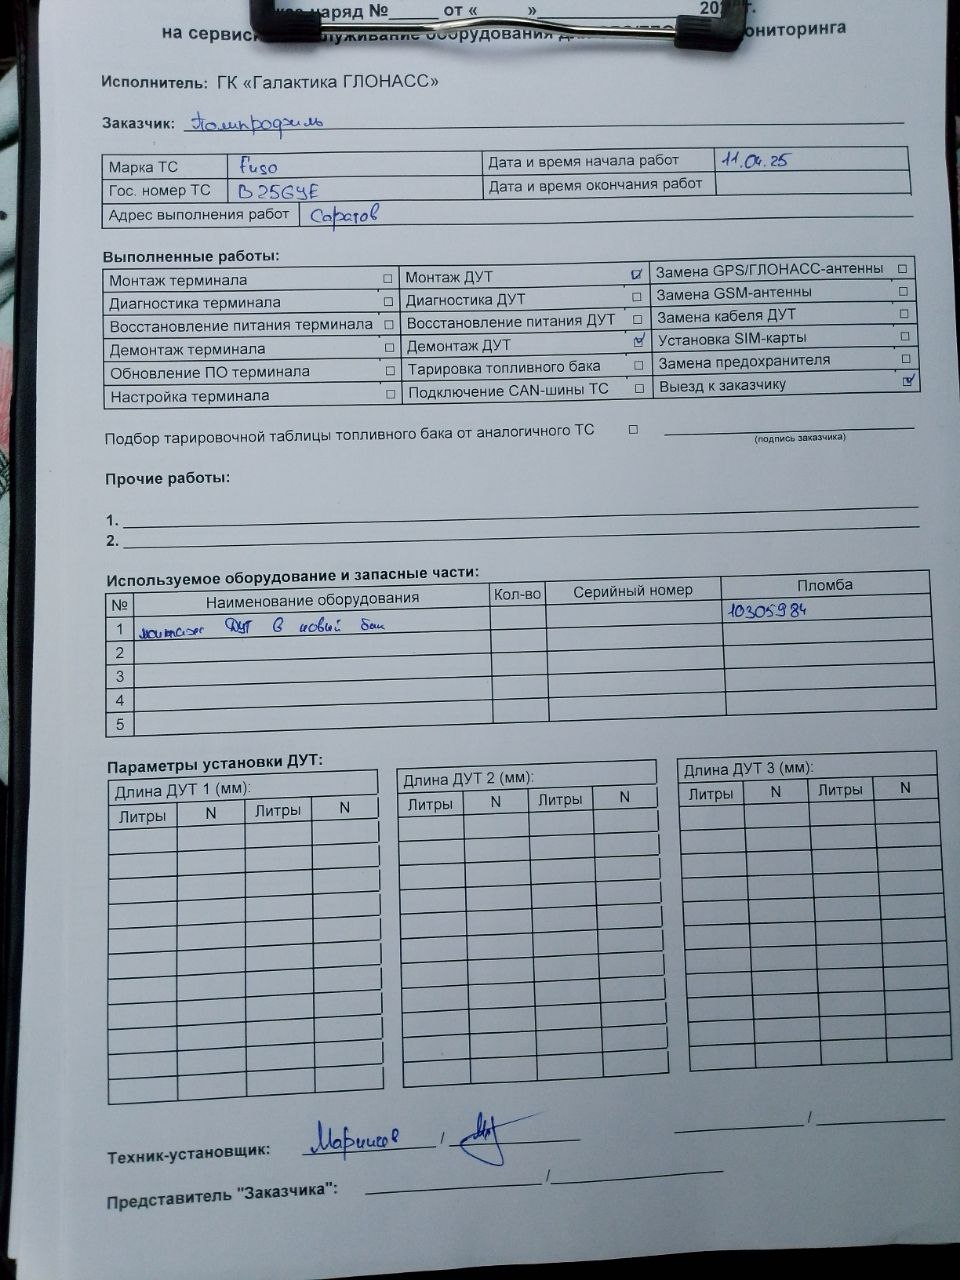 наряд №_____ от «_____»_______________ 202 г.
на сервис служивание оборудования д ониторинга
Исполнитель: ГК «Галактика ГЛОНАСС»
Заказчик: Полипрофиль
Марка ТС Fuso Дата и время начала работ 11.04.25
Гос. номер ТС В256УЕ Дата и время окончания работ
Адрес выполнения работ Саратов
Выполненные работы:
Монтаж терминала ☐ Монтаж ДУТ ☑ Замена GPS/ГЛОНАСС-антенны ☐
Диагностика терминала ☐ Диагностика ДУТ ☐ Замена GSM-антенны ☐
Восстановление питания терминала ☐ Восстановление питания ДУТ ☐ Замена кабеля ДУТ ☐
Демонтаж терминала ☐ Демонтаж ДУТ ☑ Установка SIM-карты ☐
Обновление ПО терминала ☐ Тарировка топливного бака ☐ Замена предохранителя ☐
Настройка терминала ☐ Подключение CAN-шины ТС ☐ Выезд к заказчику ☑
Подбор тарировочной таблицы топливного бака от аналогичного ТС ☐
(подпись заказчика)
Прочие работы:
1.
2.
Используемое оборудование и запасные части:
№ Наименование оборудования Кол-во Серийный номер Пломба
1 монтаж ДУТ в новый бак 10305984
2
3
4
5
Параметры установки ДУТ:
Длина ДУТ 1 (мм): Длина ДУТ 2 (мм): Длина ДУТ 3 (мм):
Литры N Литры N Литры N Литры N Литры N Литры N
Техник-установщик: /
Представитель "Заказчика": /